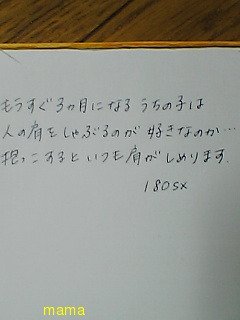 もうすぐ3カ月になる うちの子は
人の肩をしゃぶるのが 好きなのか…
抱っこすると いつも肩が しめります.
180sx
mama